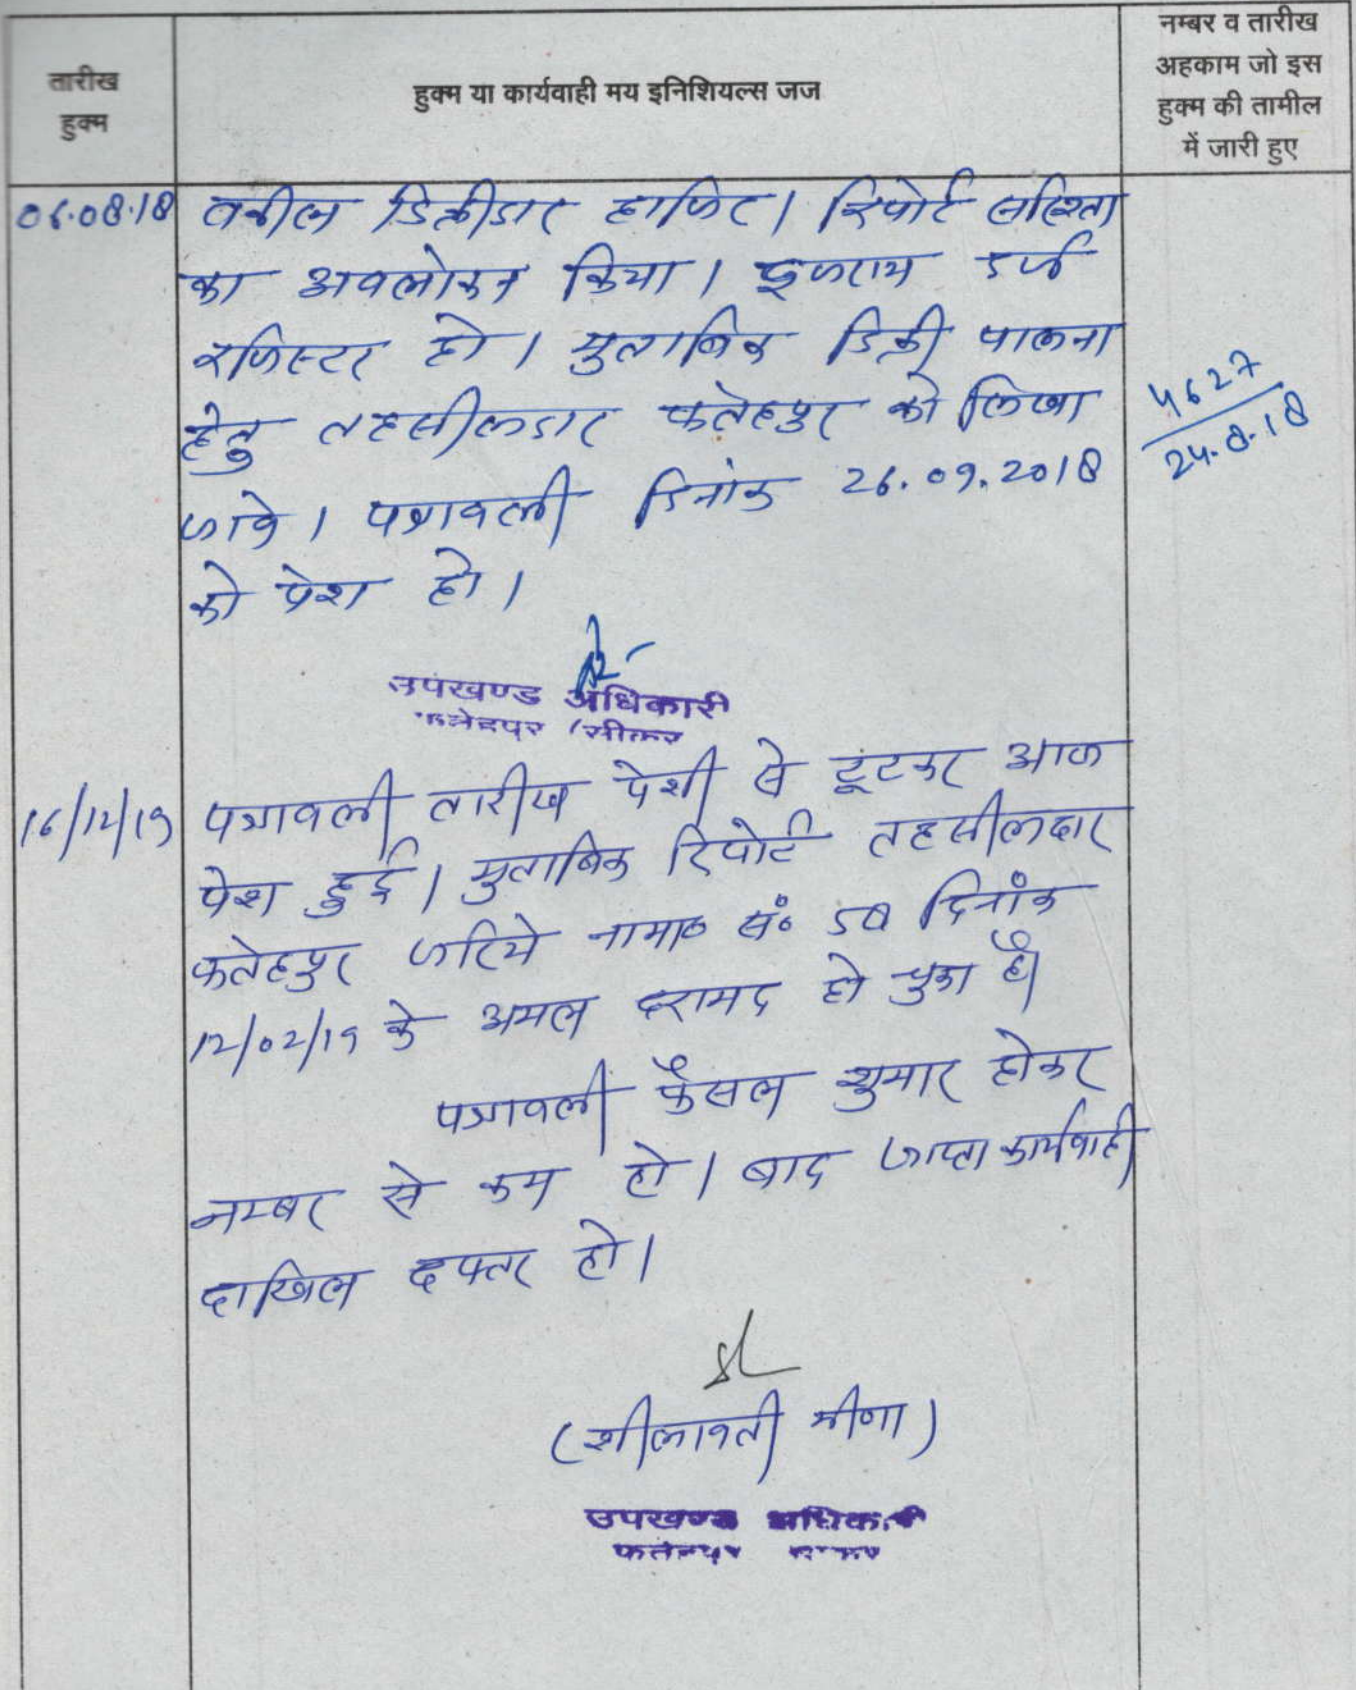 तारीख
हुक्म
हुक्म या कार्यवाही मय इनिशियल्स जज
नम्बर व तारीख
अहकाम जो इस
हुक्म की तामील
में जारी हुए
06.08.18
वकील डिक्रीदार हाजिर। रिपोर्ट सरिश्ता
का अवलोकन किया। इजराय दर्ज
रजिस्टर हो। मुताबिक डिक्री पालना
हेतु तहसीलदार फतेहपुर को लिखा
जावे। पत्रावली दिनांक 26.09.2018
को पेश हो।
4627
24.8.18
उपखण्ड अधिकारी
फतेहपुर (सीकर
16/12/19
पत्रावली तारीख पेशी से टूटकर आज
पेश हुई। मुताबिक रिपोर्ट तहसीलदार
फतेहपुर जरिये नामा० सं० दिनांक
12/02/19 के अमल दरामद हो चुका है।
पत्रावली फैसल शुमार होकर
नम्बर से कम हो। बाद जाप्ता कार्यवाही
दाखिल दफ्तर हो।
(शीलावती मीणा)
उपखण्ड अधिकारी
फतेहपुर